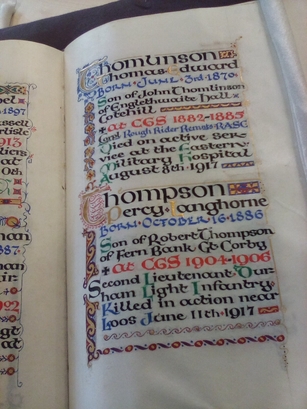 bel
1897
assell
artist
1913
liers
at
oth
nan
887.
man
air
902
gt
at
Thomlinson
Thomas Edward
Born June 3rd 1870.
Son of John Thomlinson
of Englethwaite Hall
Cotehill
at CGS 1882-1885
Rough Rider Remts RASC
Died on active ser-
vice at the Eastern
Military Hospital
August 8th 1917
Thompson
Percy Langhorne
Born October 16 1886
Son of Robert Thompson
of Fern Bank Gt Corby
at CGS 1904-1906
Second Lieutenant Dur-
ham Light Infantry
Killed in action near
Loos June 11th 1917